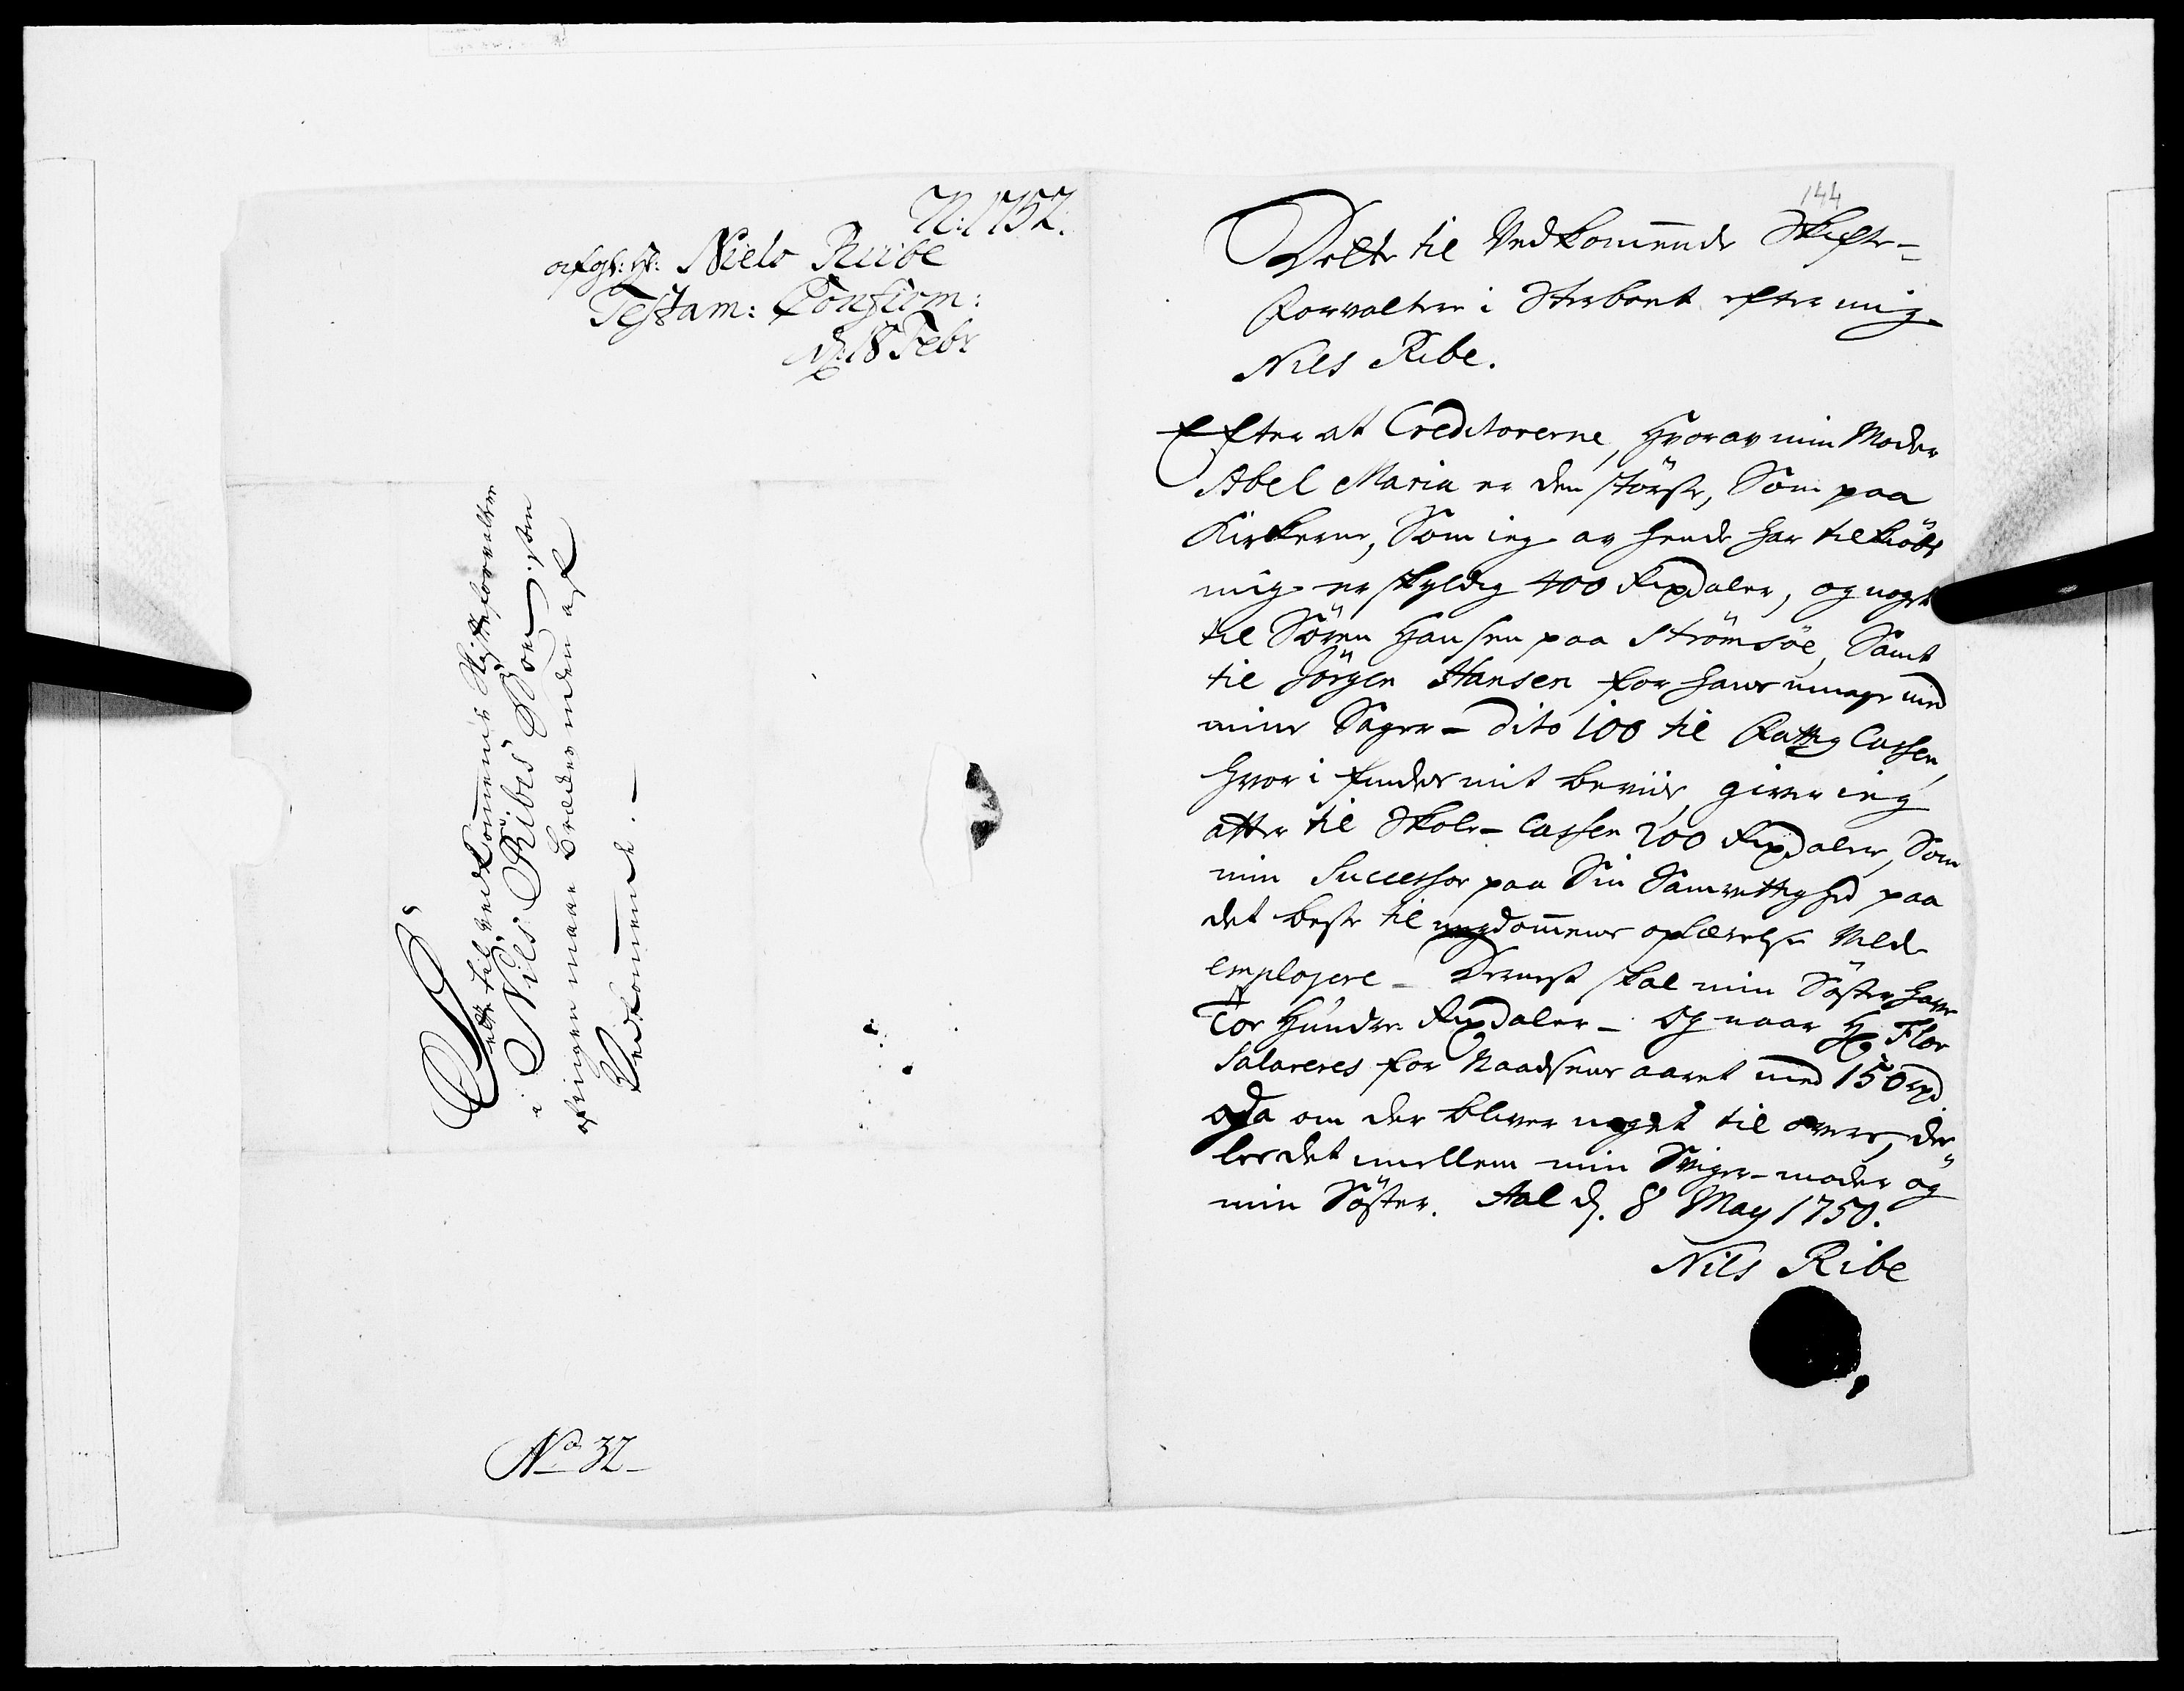 N: 1752.
afg: Hr: Niels Riibe
Testam: Confirm:
d: 18 Febr
Dette til Vedkom̅ens Skifteforvalter
i Nils Ribes Boe, som
ingen maae Bræder uden af
Vedkom̅ende. —
No 32
144
Dette til Vedkom̅ende Skifte-
Forvaltere i Sterboet efter mig
Nils Ribe.
Efter at Creditorerne, hvorav min Moder
Abel Maria er den störste, Som paa
Kirkerne, Som ieg av hende har tilkiöbt
mig er skyldig 400 Rixdaler, og noget
til Sören Hansen paa Strömsöe, Samt
til Jörgen Hansen for hans umage med
mine Sager - dito 100 til Fattig Cassen,
hvor i findes mit beviis, giver ieg
atter til Skole-Cassen 200 Rixdaler, Som
min Successor paa Sin Samvittighed paa
det beste til ungdom̅ens oplærelse Vilde
employere - Dernest skal min Söster have
Toe Hundre Rixdaler - Og naar Hr Flor
Salareres for Naadsens aaret med 150 rd
og da om der bliver noget til overs, dee-
les det imellem min Sviger-moder og
min Söster. Aal d. 8 May 1750.
Nils Ribe